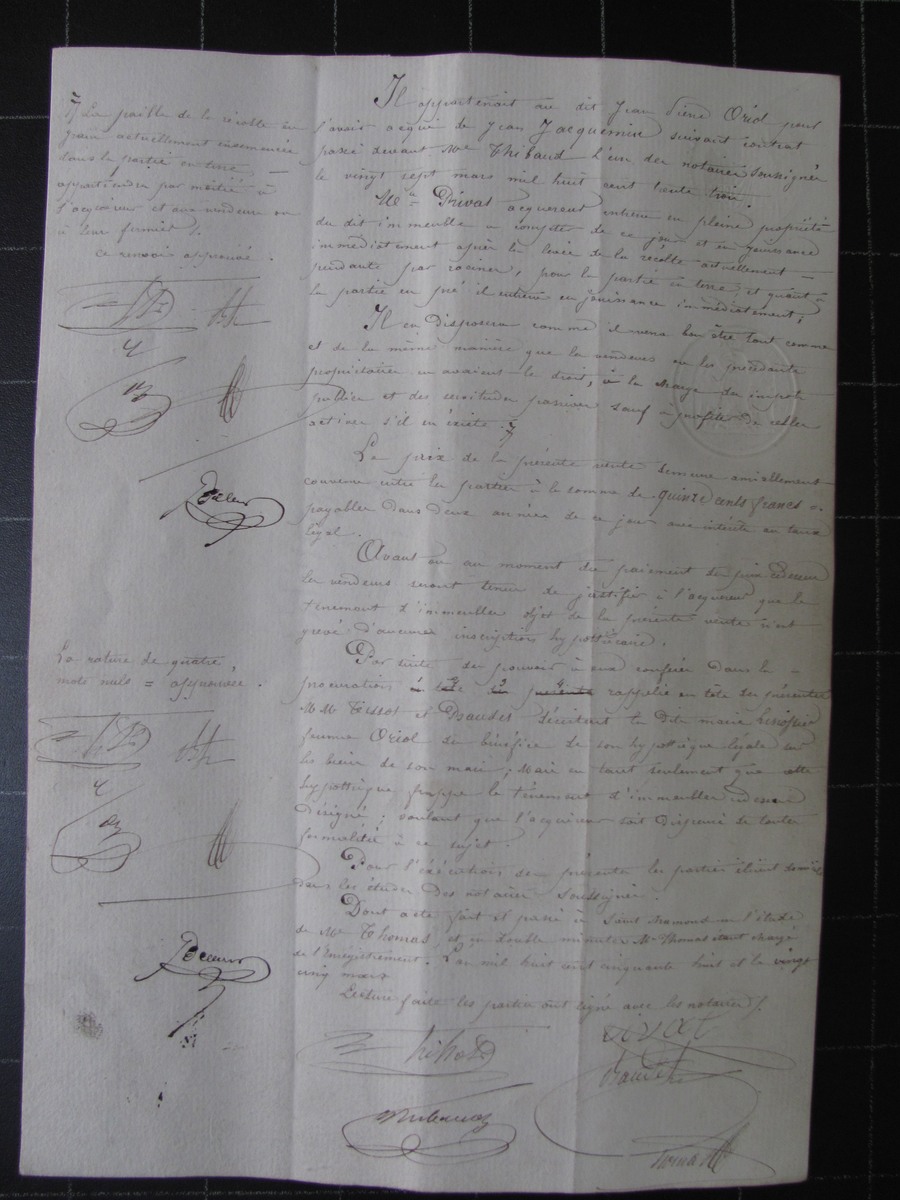 Il appartenait au dit Jean Pierre Oriol pour
l'avoir acquis de Jean Jacquemin suivant contrat
passé devant Me Thibaud l'un des notaires soussignés
le vingt sept mars mil huit cent trente trois.
Mr Privat acquereur entrera en pleine propriété
du dit immeuble à compter de ce jour et en jouissance
immédiatement après la levée de la récolte actuellement
pendante par racines, pour la partie en terre, et quant à
la partie en pré il entrera en jouissance immédiatement;
Il en disposera comme il verra bon être tout comme
et de la même manière que les vendeurs ou les précédents
propriétaires en avaient le droit, à la charge des impots
publics et des servitudes passives sauf à profiter de celles
actives s'il en existe.
Le prix de la présente vente demeure amiablement
convenu entre les parties à la somme de quinze cents francs =
payables dans deux années de ce jour avec intérêts au taux
légal.
Avant ou au moment du paiement du prix cidessus
les vendeurs seront tenus de justifier à l'acquereur que le
tenement d'immeubles objet de la présente vente n'est
grevé d'aucunes inscriptions hypothécaires.
Par suite des pouvoirs à eux conférés dans la
procuration rappelée en tête des présentes
MM Tissot et Baudet désistent la dite marie
femme Oriol du bénéfice de son hypothèque légale sur
les biens de son mari; Mais en tant seulement que cette
hypothèque frappe le tènement d'immeubles cidessus
désigné; voulant que l'acquéreur soit dispensé de toutes
formalités à ce sujet.
Pour l'exécution des présentes les parties élisent domicile
dans les études des notaires soussignés.
Dont acte fait et passé à Saint chamond en l'étude
de Me Thomas, et en double minutes Me Thomas étant chargé
de l'Enregistrement. l'an mil huit cent cinquante huit et le vingt
cinq mars
Lecture faite les parties ont signé avec les notaires.
La paille de la récolte en
grain actuellement ensemencée
dans la partie en terre,
appartiendra par moitié à
l'acquéreur et aux vendeurs ou
à leur fermier.
ce renvoi approuvé.
La rature de quatre
mots nuls = approuvée.